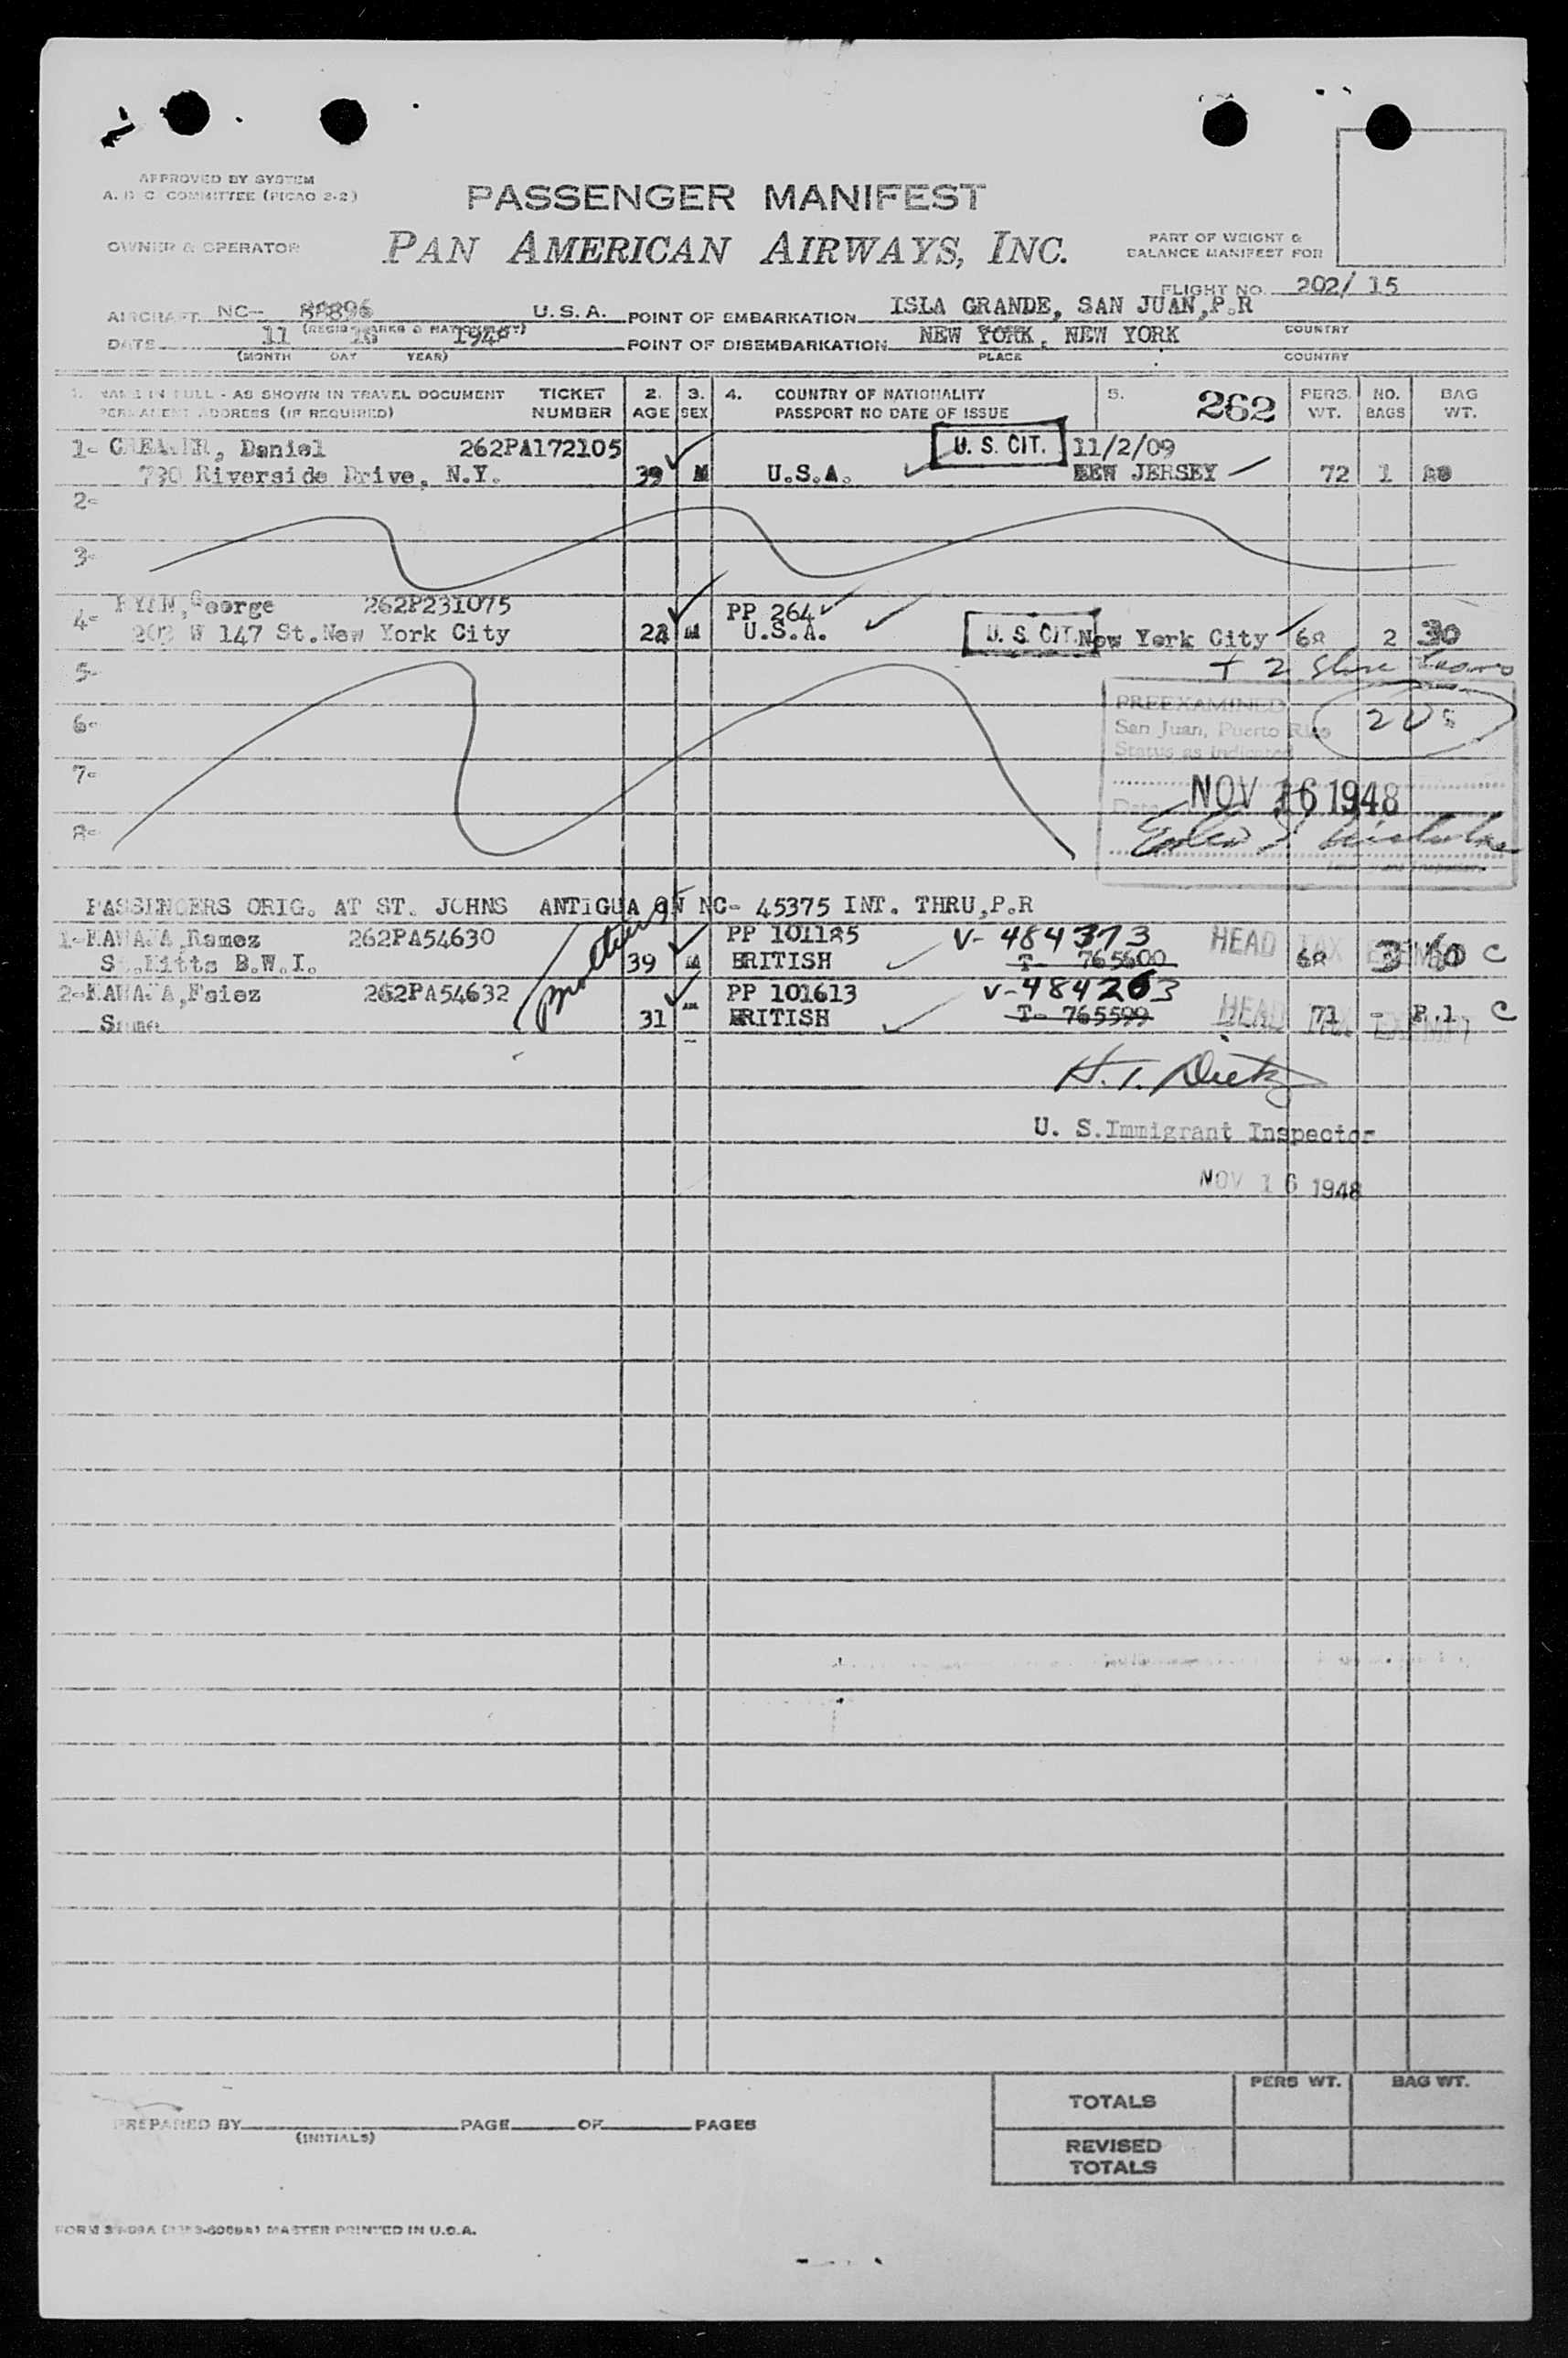 APPROVED BY SYSTEM
A. D C COMMITTEE (PICAO 2-2)
PASSENGER MANIFEST
OWNER & OPERATOR
PAN AMERICAN AIRWAYS, INC.
PART OF WEIGHT &
BALANCE MANIFEST FOR
FLIGHT NO. 202/ 15
AIRCRAFT NC- 88896 U.S.A. POINT OF EMBARKATION ISLA GRANDE, SAN JUAN,P.R
COUNTRY
DATE 11 16 1948 POINT OF DISEMBARKATION NEW YORK, NEW YORK
(MONTH DAY YEAR) PLACE COUNTRY
1. NAME IN FULL - AS SHOWN IN TRAVEL DOCUMENT TICKET 2. 3. 4. COUNTRY OF NATIONALITY 5. 262 PERS. NO. BAG
PERMANENT ADDRESS (IF REQUIRED) NUMBER AGE SEX PASSPORT NO DATE OF ISSUE WT. BAGS WT.
1- Daniel 262PA172105 U. S. CIT. 11/2/09
Riverside Drive, N.Y. 39 M U.S.A. NEW JERSEY 72 1
2-
3-
RYAN,George 262P231075 PP 264
4- 203 W 147 St.New York City M U.S.A. U. S. CIT. New York City 68 2 30
+ 2
5-
PREEXAMINED
6- San Juan, Puerto Rico
Status as indicated
7-
Date NOV 16 1948
8-
PASSENGERS ORIG. AT ST. JOHNS ANTIGUA ON NC- 45375 INT. THRU,P.R
1-KAWAJA,Ramez 262PA54630 brothers PP 101185 V- 484373 HEAD TAX EXEMPT
St.Kitts B.W.I. 39 M BRITISH T- 765600 68 3 60 C
2-KAWAJA,Faiez 262PA54632 PP 101613 V-484263
Same 31 BRITISH T- 765599 HEAD TAX EXEMPT 71 - P.1 C
H. T. Dietz
U. S.Immigrant Inspector
NOV 16 1948
PERS WT. BAG WT.
TOTALS
PREPARED BY PAGE OF PAGES
(INITIALS)
REVISED
TOTALS
MASTER PRINTED IN U.S.A.